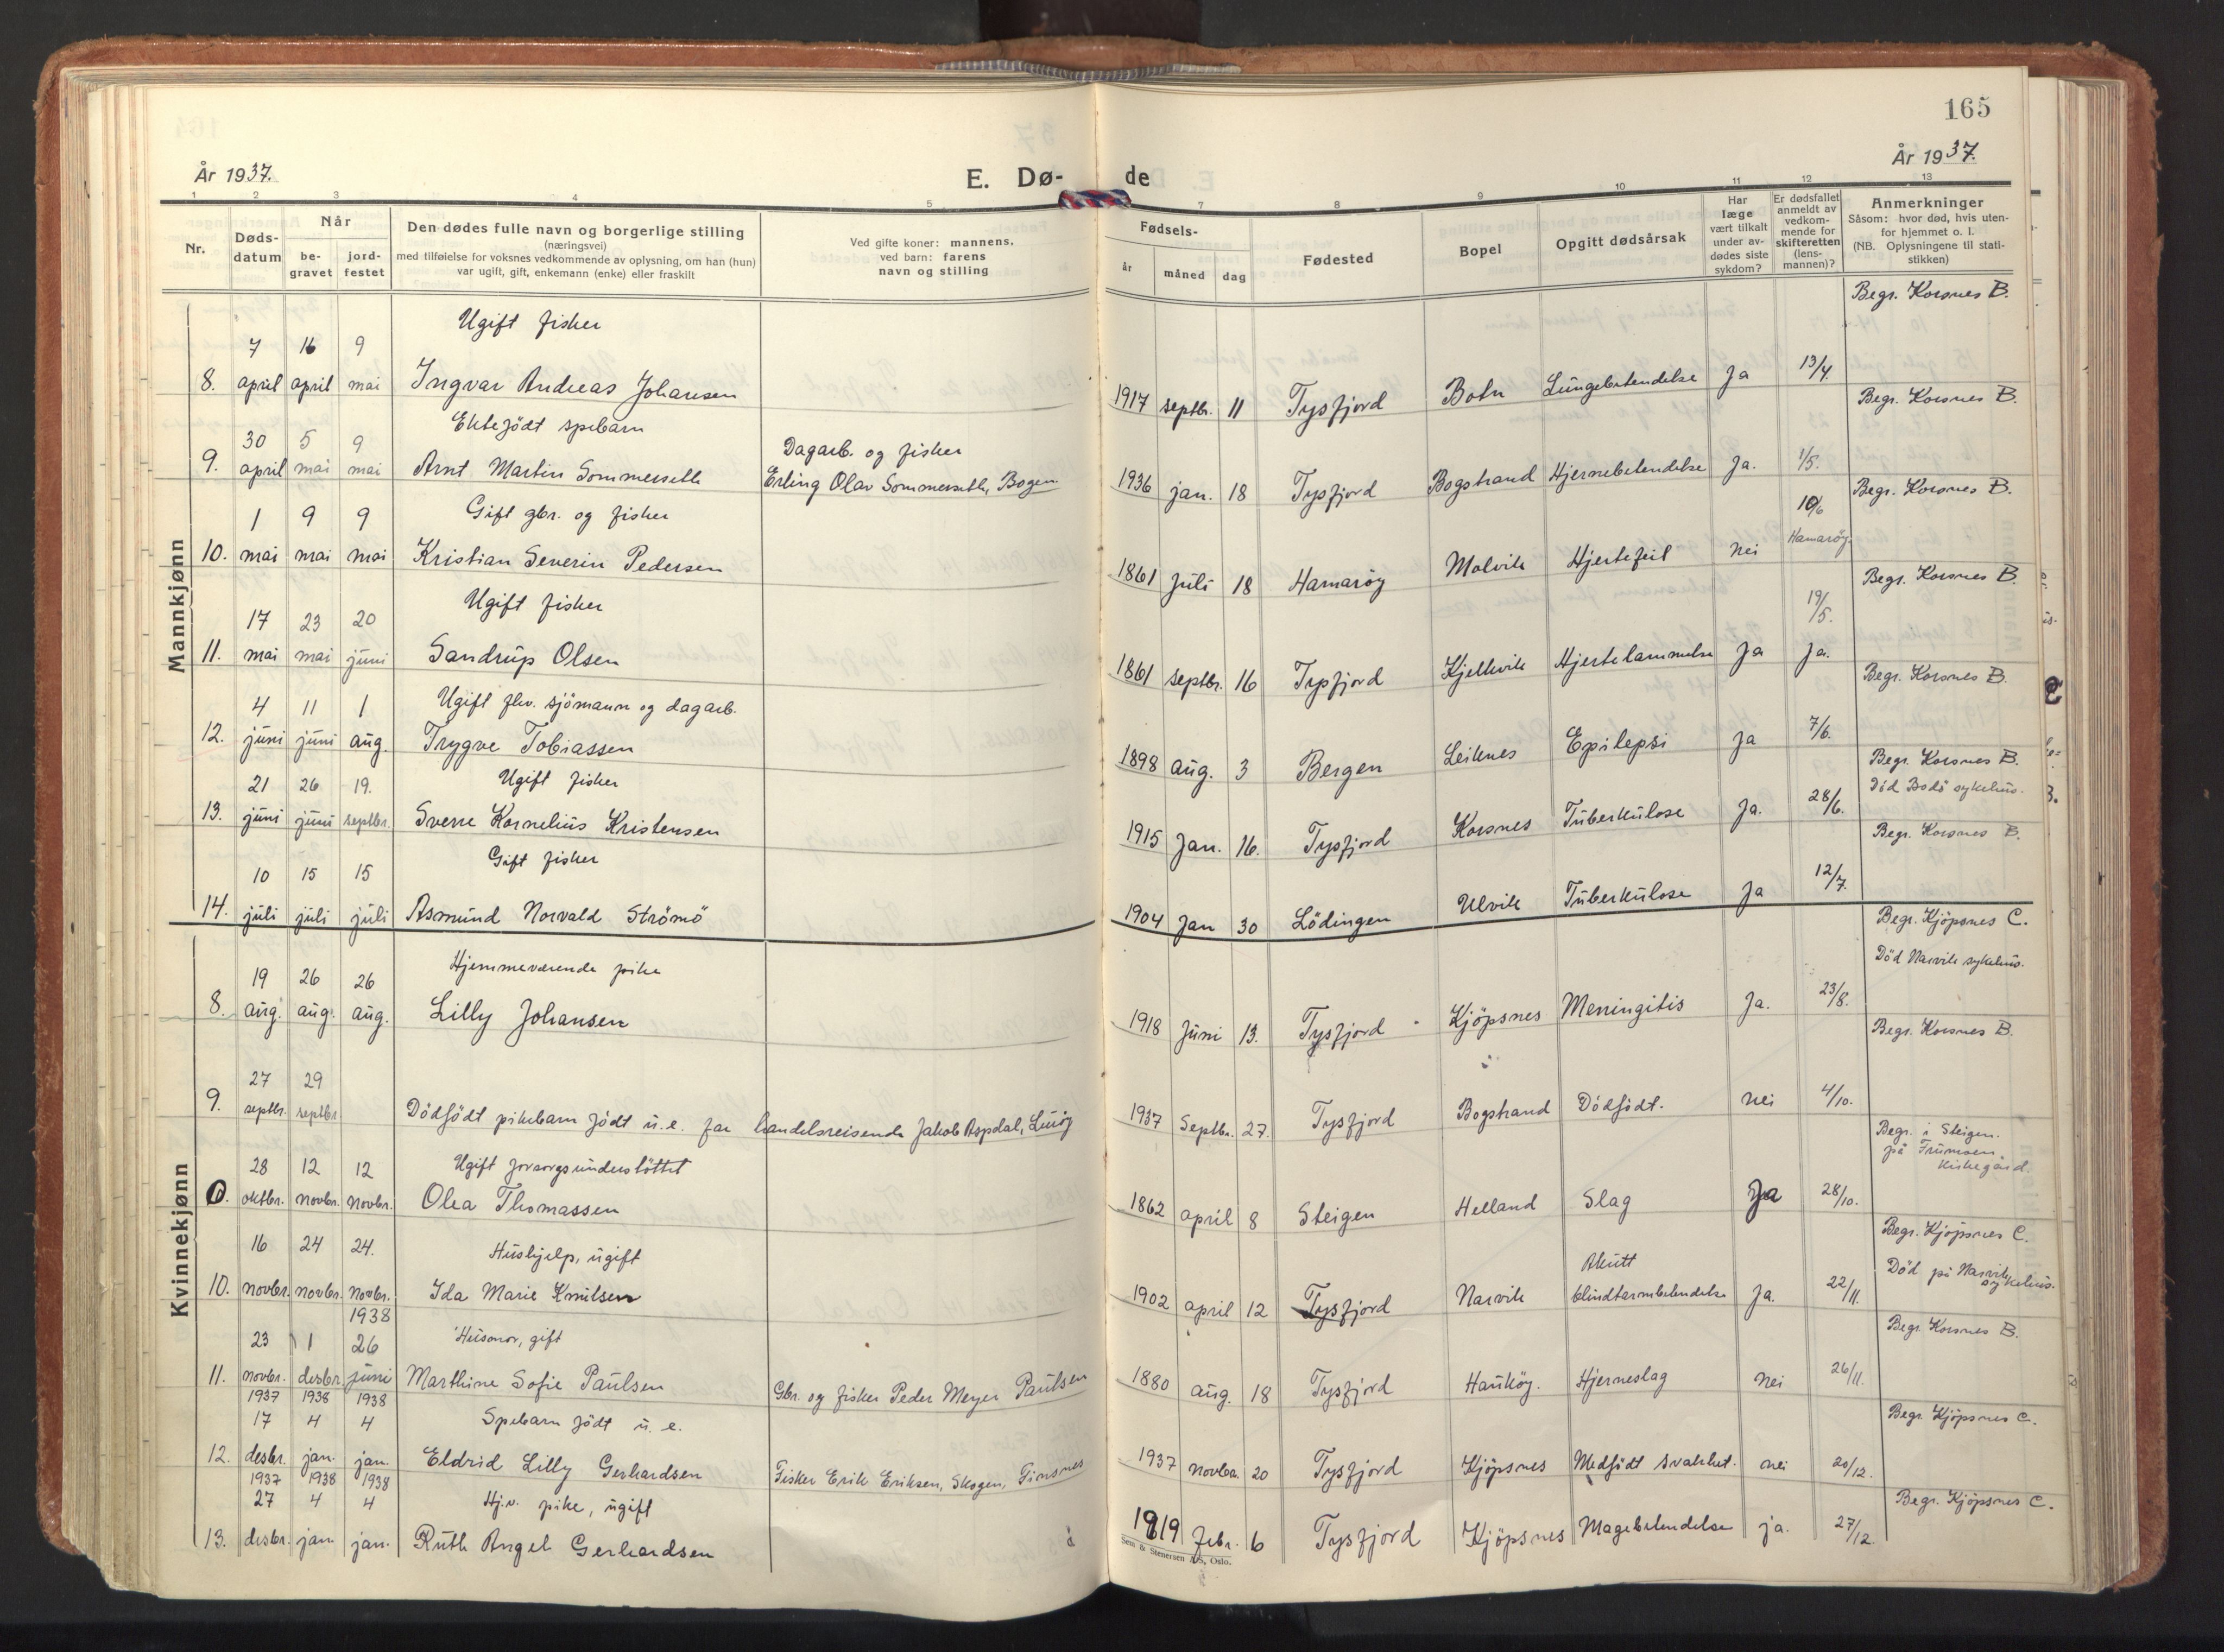 165
År 1937.
E. Dø-
de
År 1937.
1 2 3 4 5 7 8 9 10 11 12 13
Nr.
Døds-
datum
Når
be-
gravet
jord-
festet
Den dødes fulle navn og borgerlige stilling
(næringsvei)
med tilføielse for voksnes vedkommende av oplysning, om han (hun)
var ugift, gift, enkemann (enke) eller fraskilt
Ved gifte koner: mannens.
ved barn: farens
navn og stilling
Fødsels-
år måned dag
Fødested
Bopel
Opgitt dødsårsak
Har
læge
vært tilkalt
under av-
dødes siste
sykdom?
Er dødsfallet
anmeldt av
vedkom-
mende for
skifteretten
(lens-
mannen)?
Anmerkninger
Såsom: hvor død, hvis uten-
for hjemmet o. l.
(NB. Oplysningene til stati-
stikken)
Mannkjønn
Ugift fisker Begr. Korsnes B.
7 16 9
8. april april mai Ingvar Andreas Johansen 1917 septbr. 11 Tysfjord Botn Lungebetendelse Ja 13/4.
Ektefødt spebarn Begr. Korsnes B.
30 5 9 Dagarb. og fisker
9. april mai mai Arnt Martin Sommerseth Erling Olav Sommerseth, Bogen. 1936 jan. 18 Tysfjord Bogstrand Hjernebetendelse Ja. 1/5.
1 9 9 Gift gbr. og fisker 10/6 Begr. Korsnes B.
10. mai mai mai Kristian Severin Pedersen 1861 juli 18 Hamaröy Molvik Hjertefeil nei Hamaröy
17 23 20 Ugift fisker 19/5. Begr. Korsnes B.
11. mai mai juni Sandrup Olsen 1861 septbr. 16 Tysfjord Kjelkvik Hjertelammelse Ja Ja.
4 11 1 Ugift fhv. sjömann og dagarb. Begr. Korsnes B.
12. juni juni aug. Trygve Tobiassen 1898 aug. 3 Bergen Leiknes Epilepsi Ja 7/6.
21 26 19. Ugift fisker Begr. Korsnes B.
Död Bodö sykehus.
13. juni juni septbr. Sverre Kornelius Kristensen 1915 Jan. 16. Tysfjord Korsnes Tuberkulose Ja. 28/6.
10 15 15 Gift fisker Begr. Korsnes B.
14. juli juli juli Asmund Norvald Strömö 1904 Jan 30 Lödingen Ulvik Tuberkulose Ja 12/7.
Kvinnekjønn
19 26 26 Hjemmeværende pike Begr. Kjöpsnes C.
Död Narvik sykehus.
8. aug. aug. aug. Lilly Johansen 1918 Juni 13. Tysfjord Kjöpsnes Meningitis Ja. 23/8.
27 29 Begr. Korsnes B.
9. septbr. septbr Dödfödt pikebarn födt u.e. far handelsreisende Jakob Aspdal, 1937 Septbr. 27. Tysfjord Bogstrand Dödfödt. nei 4/10.
28 12 12 Ugift forsorgsunderstöttet Begr. i Steigen.
på
kirkegård.
oktbr. novbr. novbr. Olea Thomassen 1862 april 8 Steigen Helland Slag Ja 28/10.
16 24 24. Hushjelp, ugift Akutt Begr. Kjöpsnes C.
Död på Narvik
sykehus.
10. novbr. novbr. novbr. Ida Marie Knutsen 1902 april 12 Tysfjord Narvik blindtarmbetendelse Ja. 22/11.
1938
23 1 26 Husmor, gift Begr. Korsnes B.
11. novbr. desbr. juni Marthine Sofie Paulsen Gbr. og fisker Peder Meyer Paulsen 1880 aug. 18 Tysfjord Hauköy. Hjerneslag nei 26/11.
1937 1938 1938
17 4 4 Spebarn födt u. e. Begr. Kjöpsnes C.
12. desbr. jan. jan. Eldrid Lilly Gerhardsen Fisker Erik Eriksen, Skogen, 1937 novbr. 20 Tysfjord Kjöpsnes Medfödt svakhet. nei 20/12.
1937 1938 1938
27 4 4 Hj.v. pike, ugift Begr. Kjöpsnes C.
13. desbr. jan. jan. Ruth Angel Gerhardsen 1919 febr. 6 Tysfjord Kjöpsnes Magebetendelse ja. 27/12
Sem & Stenersen A/S, Oslo.